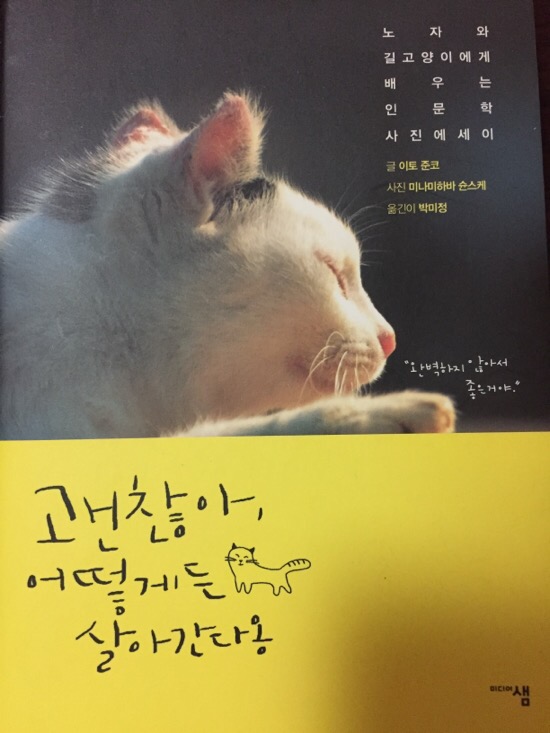 노자와
길고양이에게
배우는
인문학
사진에세이
글 이토 준코
사진 미나미하바 슌스케
옮긴이 박미정
"완벽하지 않아서
좋은거야."
괜찮아,
어떻게든
살아간다옹
미디어샘